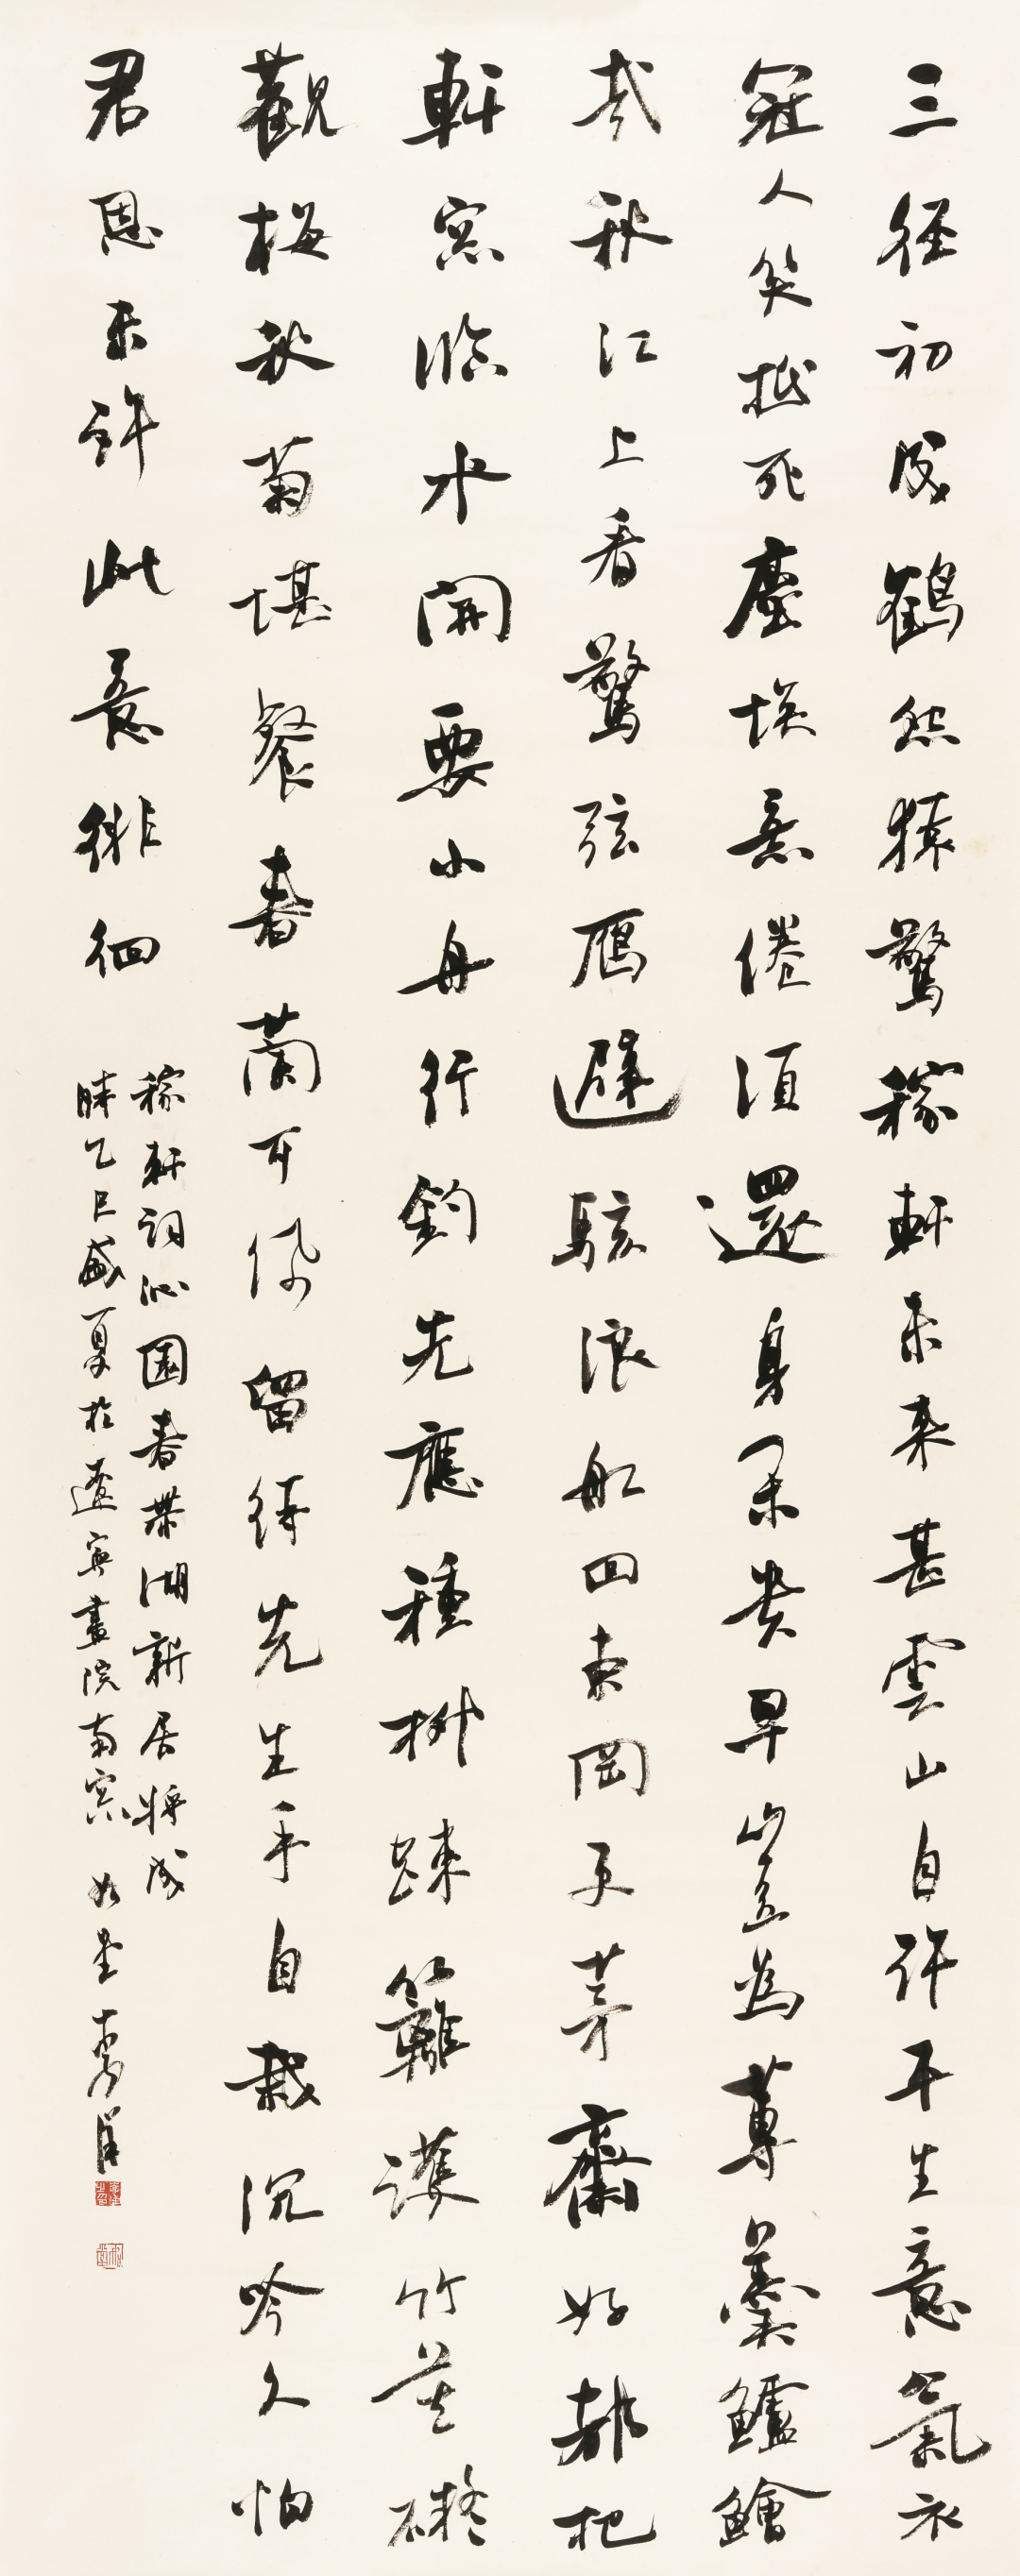 三徑初成鶴怨猿驚稼軒未來甚雲山自許平生意氣衣
冠人笑抵死塵埃意倦須還身閑貴早豈為蓴羹鱸鱠
哉秋江上看驚弦雁避駭浪船回東岡更茅齋好都把
軒窗臨水開要小舟行釣先應種柳疏籬護竹莫礙
觀梅秋菊堪餐春蘭可佩留待先生手自栽沉吟久怕
君恩未許此意徘徊
稼軒詞沁園春帶湖新居將成
時乙巳盛夏於遼寧畫院南窗